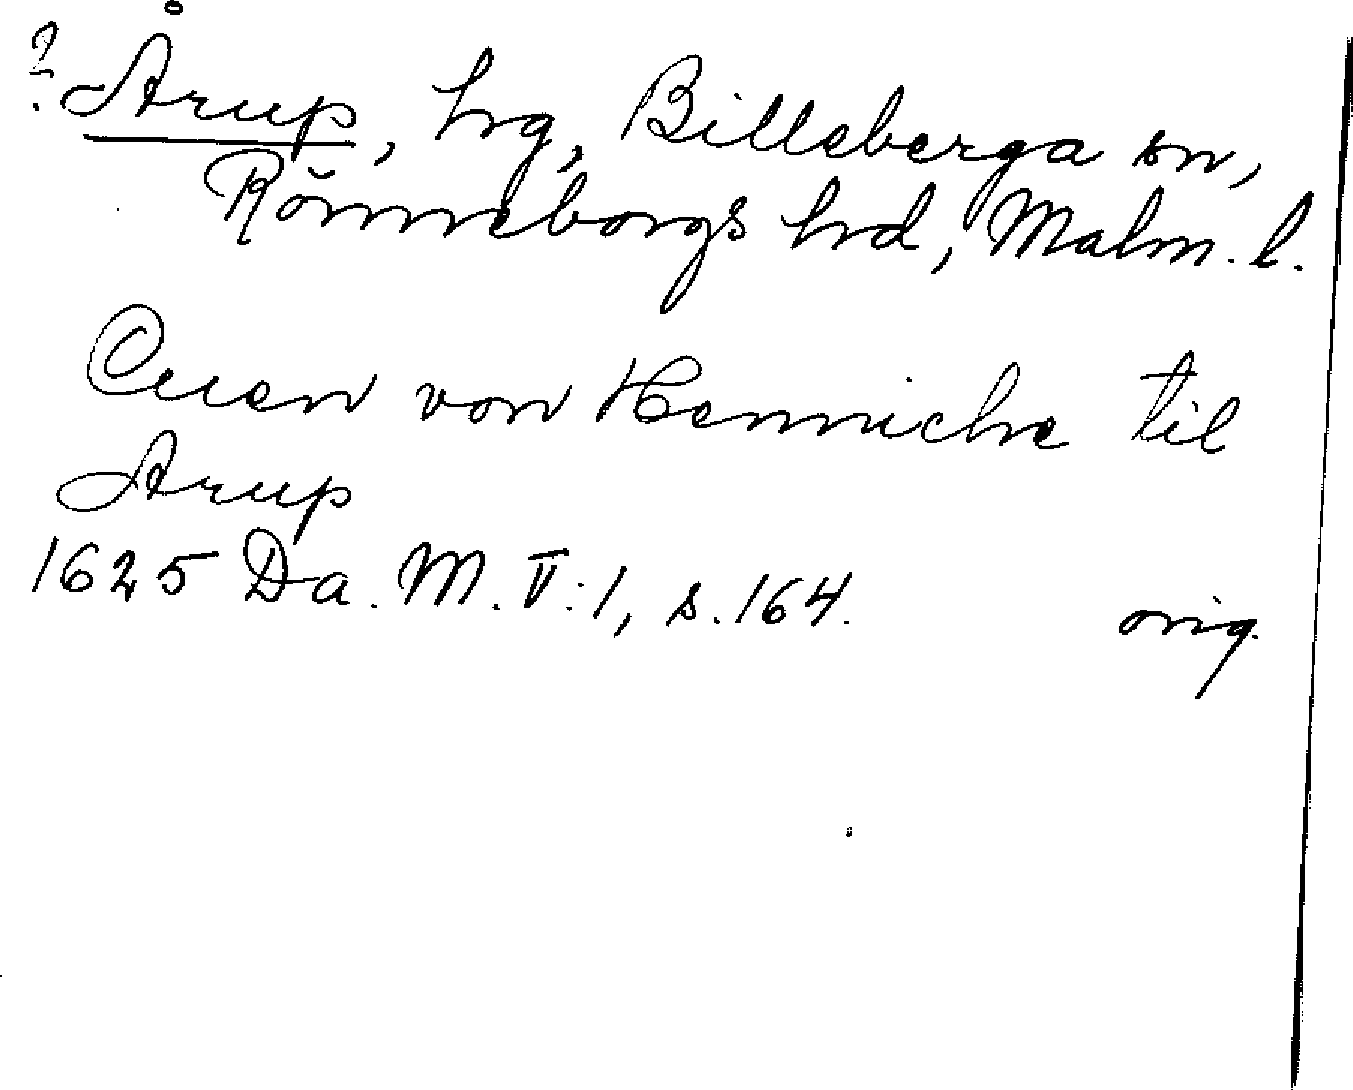 ? Årup, hrg, Billeberga sn,
Rönnebergs hrd, Malm. l.
Curen von Henniche til
Arup
1625 Da. M. V:1, s. 164. orig.